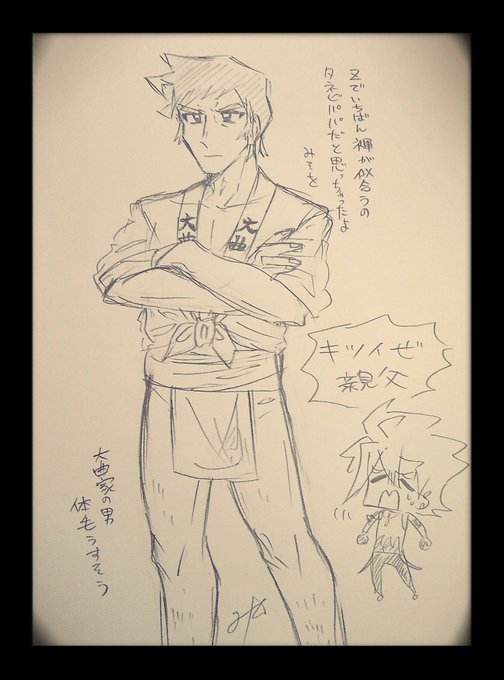 又でいちばん褌が似合うの
タネビパパだと思っちゃったよ
みそを
大曲
大曲
キツイぜ
親父
大曲家の男
体毛うすそう